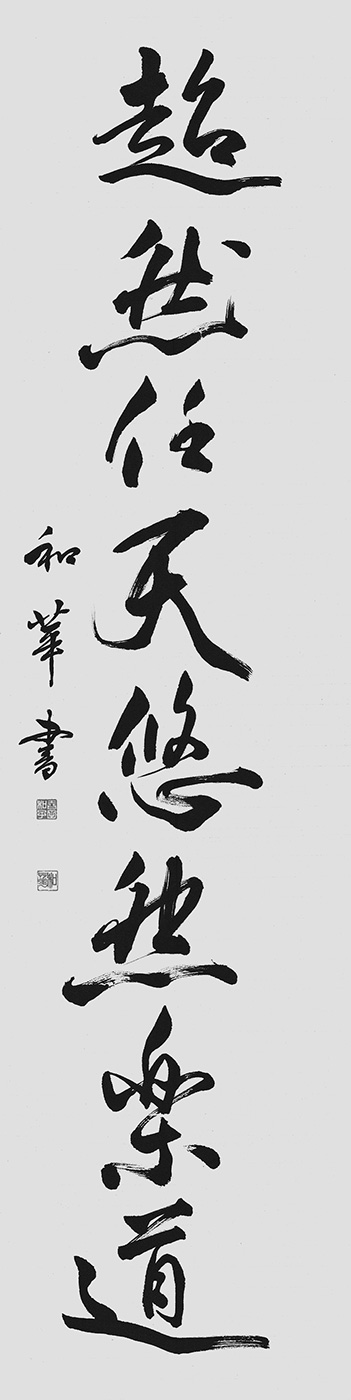 超然任天悠然楽道
和華書